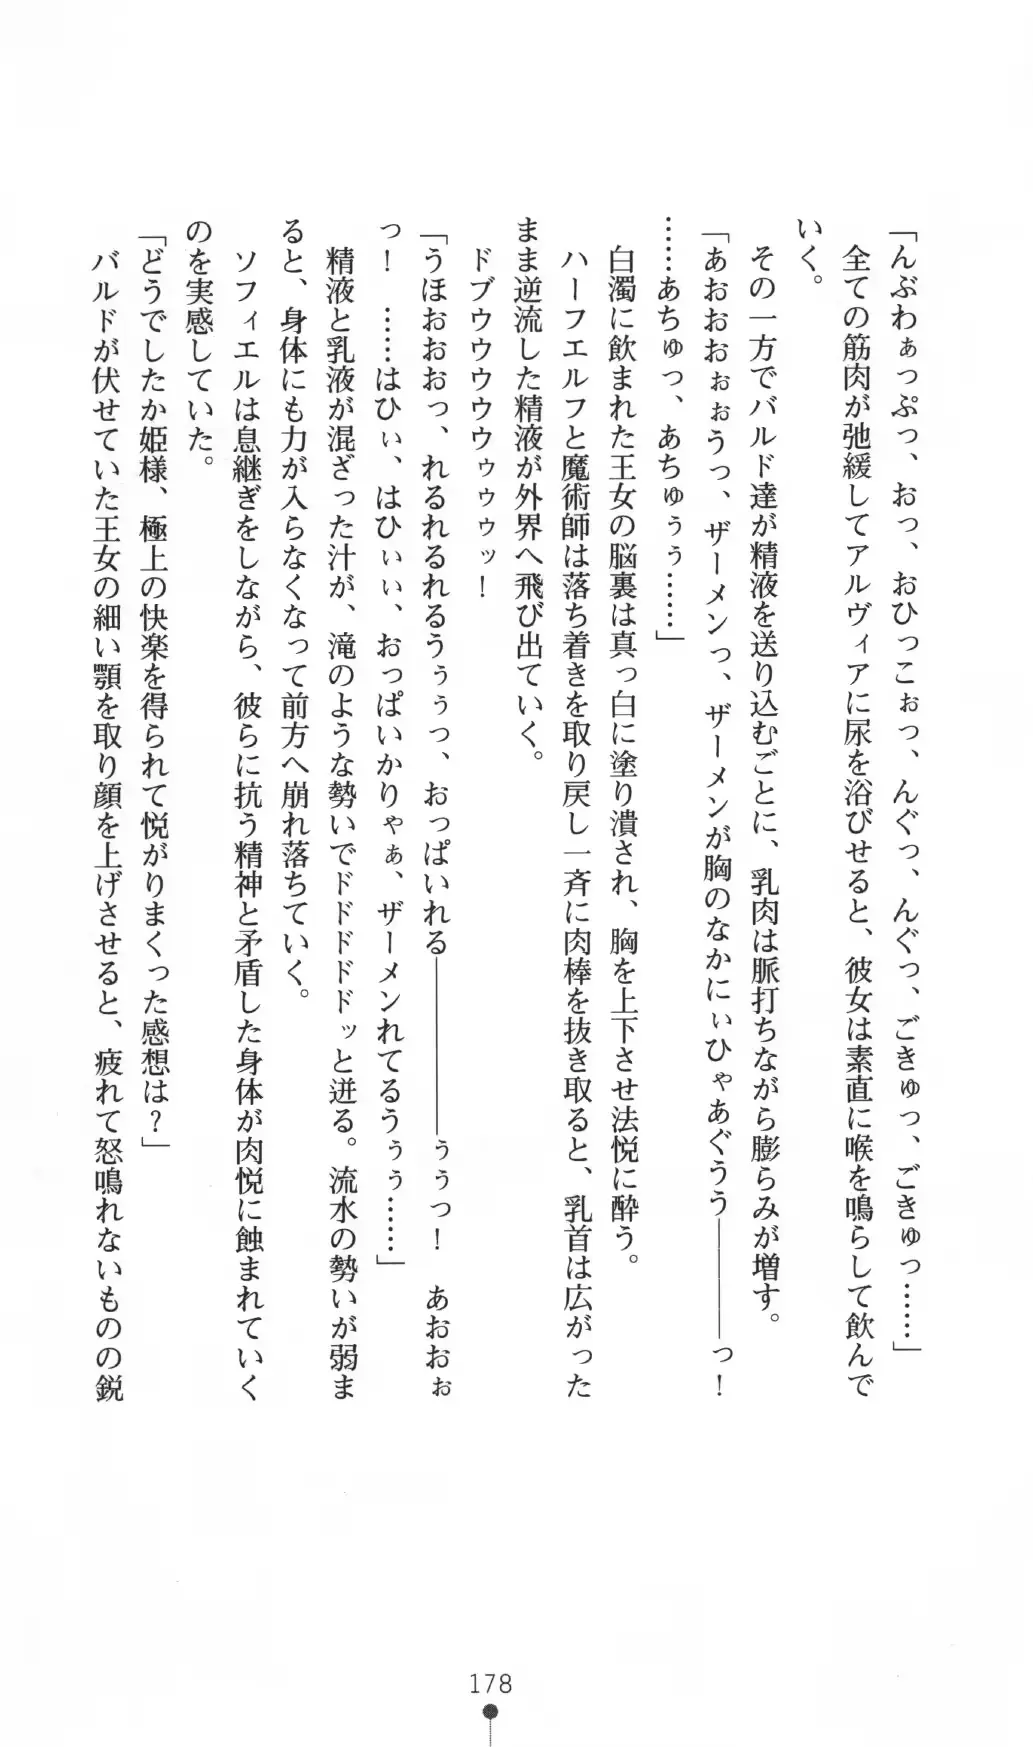 「んぶわぁっぷっ、おっ、おひっこぉっ、んぐっ、んぐっ、ごきゅっ、ごきゅっ……」
全ての筋肉が弛緩してアルヴィアに尿を浴びせると、彼女は素直に喉を鳴らして飲んで
いく。
その一方でバルド達が精液を送り込むごとに、乳肉は脈打ちながら膨らみが増す。
「あおおおぉぉうっ、ザーメンっ、ザーメンが胸のなかにぃひゃあぐうう――――っ！
……あちゅっ、あちゅぅぅ……」
白濁に飲まれた王女の脳裏は真っ白に塗り潰され、胸を上下させ法悦に酔う。
ハーフエルフと魔術師は落ち着きを取り戻し一斉に肉棒を抜き取ると、乳首は広がった
まま逆流した精液が外界へ飛び出ていく。
ドブウウウウウゥゥゥッ！
「うほおおおっ、れるれるれるうぅぅっ、おっぱいれる――――――ぅぅっ！　あおおぉ
っ！　……はひぃ、はひぃぃ、おっぱいかりゃぁ、ザーメンれてるうぅぅ……」
精液と乳液が混ざった汁が、滝のような勢いでドドドドッと迸る。流水の勢いが弱ま
ると、身体にも力が入らなくなって前方へ崩れ落ちていく。
ソフィエルは息継ぎをしながら、彼らに抗う精神と矛盾した身体が肉悦に蝕まれていく
のを実感していた。
「どうでしたか姫様、極上の快楽を得られて悦がりまくった感想は？」
バルドが伏せていた王女の細い顎を取り顔を上げさせると、疲れて怒鳴れないものの鋭
178